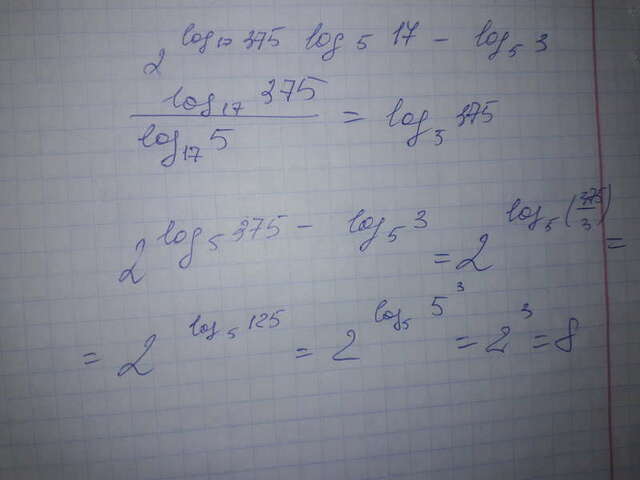 2^{log_{17} 375 log_5 17 - log_5 3}
\frac{log_{17} 375}{log_{17} 5} = log_3 375
2^{log_5 375 - log_5 3} = 2^{log_5 (\frac{375}{3})} =
= 2^{log_5 125} = 2^{log_5 5^3} = 2^3 = 8